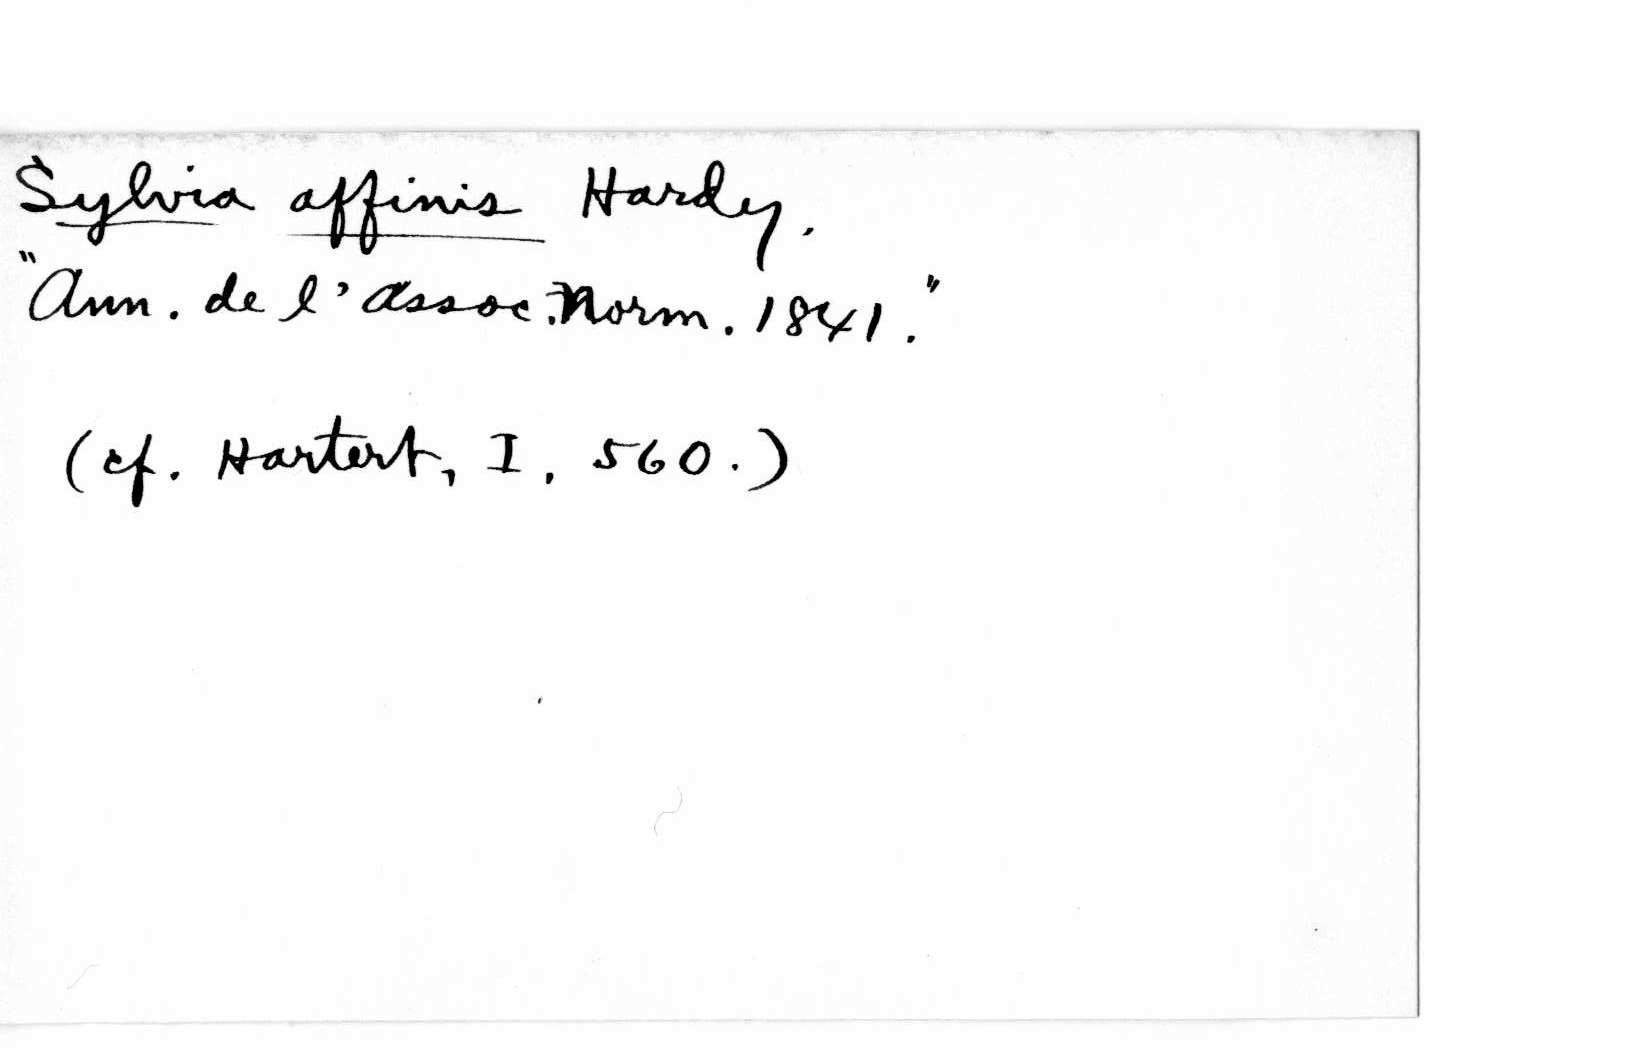 Sylvia affinis Hardy.
"Ann. de l'Assoc. Norm. 1841."
(cf. Hartert, I, 560.)